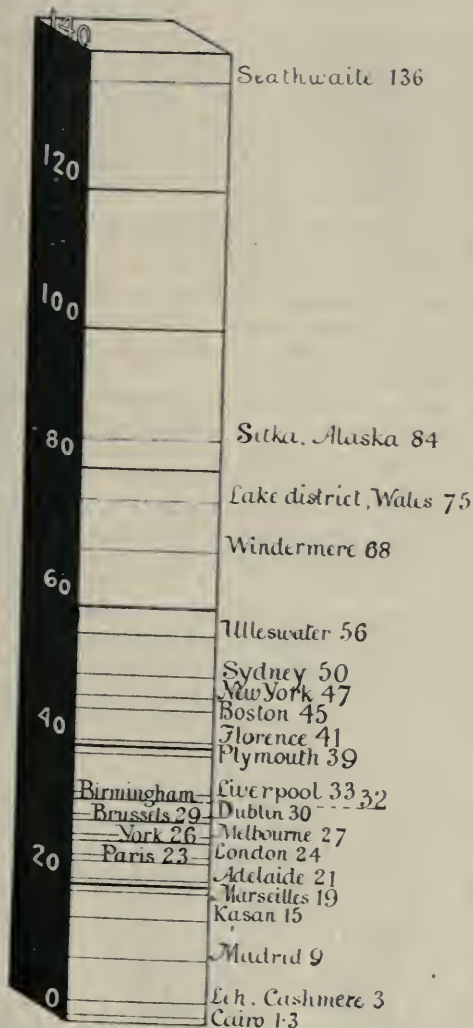 140
Seathwaite 136
120
100
80
Sitka, Alaska 84
Lake district, Wales 75
Windermere 68
60
Ulleswater 56
Sydney 50
New York 47
Boston 45
40
Florence 41
Plymouth 39
Birmingham Liverpool 33 32
Brussels 29 Dublin 30
York 26 Melbourne 27
20
Paris 23 London 24
Adelaide 21
Marseilles 19
Kasan 15
Madrid 9
0
Leh. Cashmere 3
Cairo 1·3